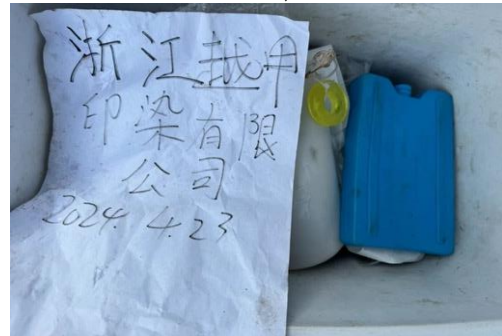 浙江越甲
印染有限
公司
2024. 4.23